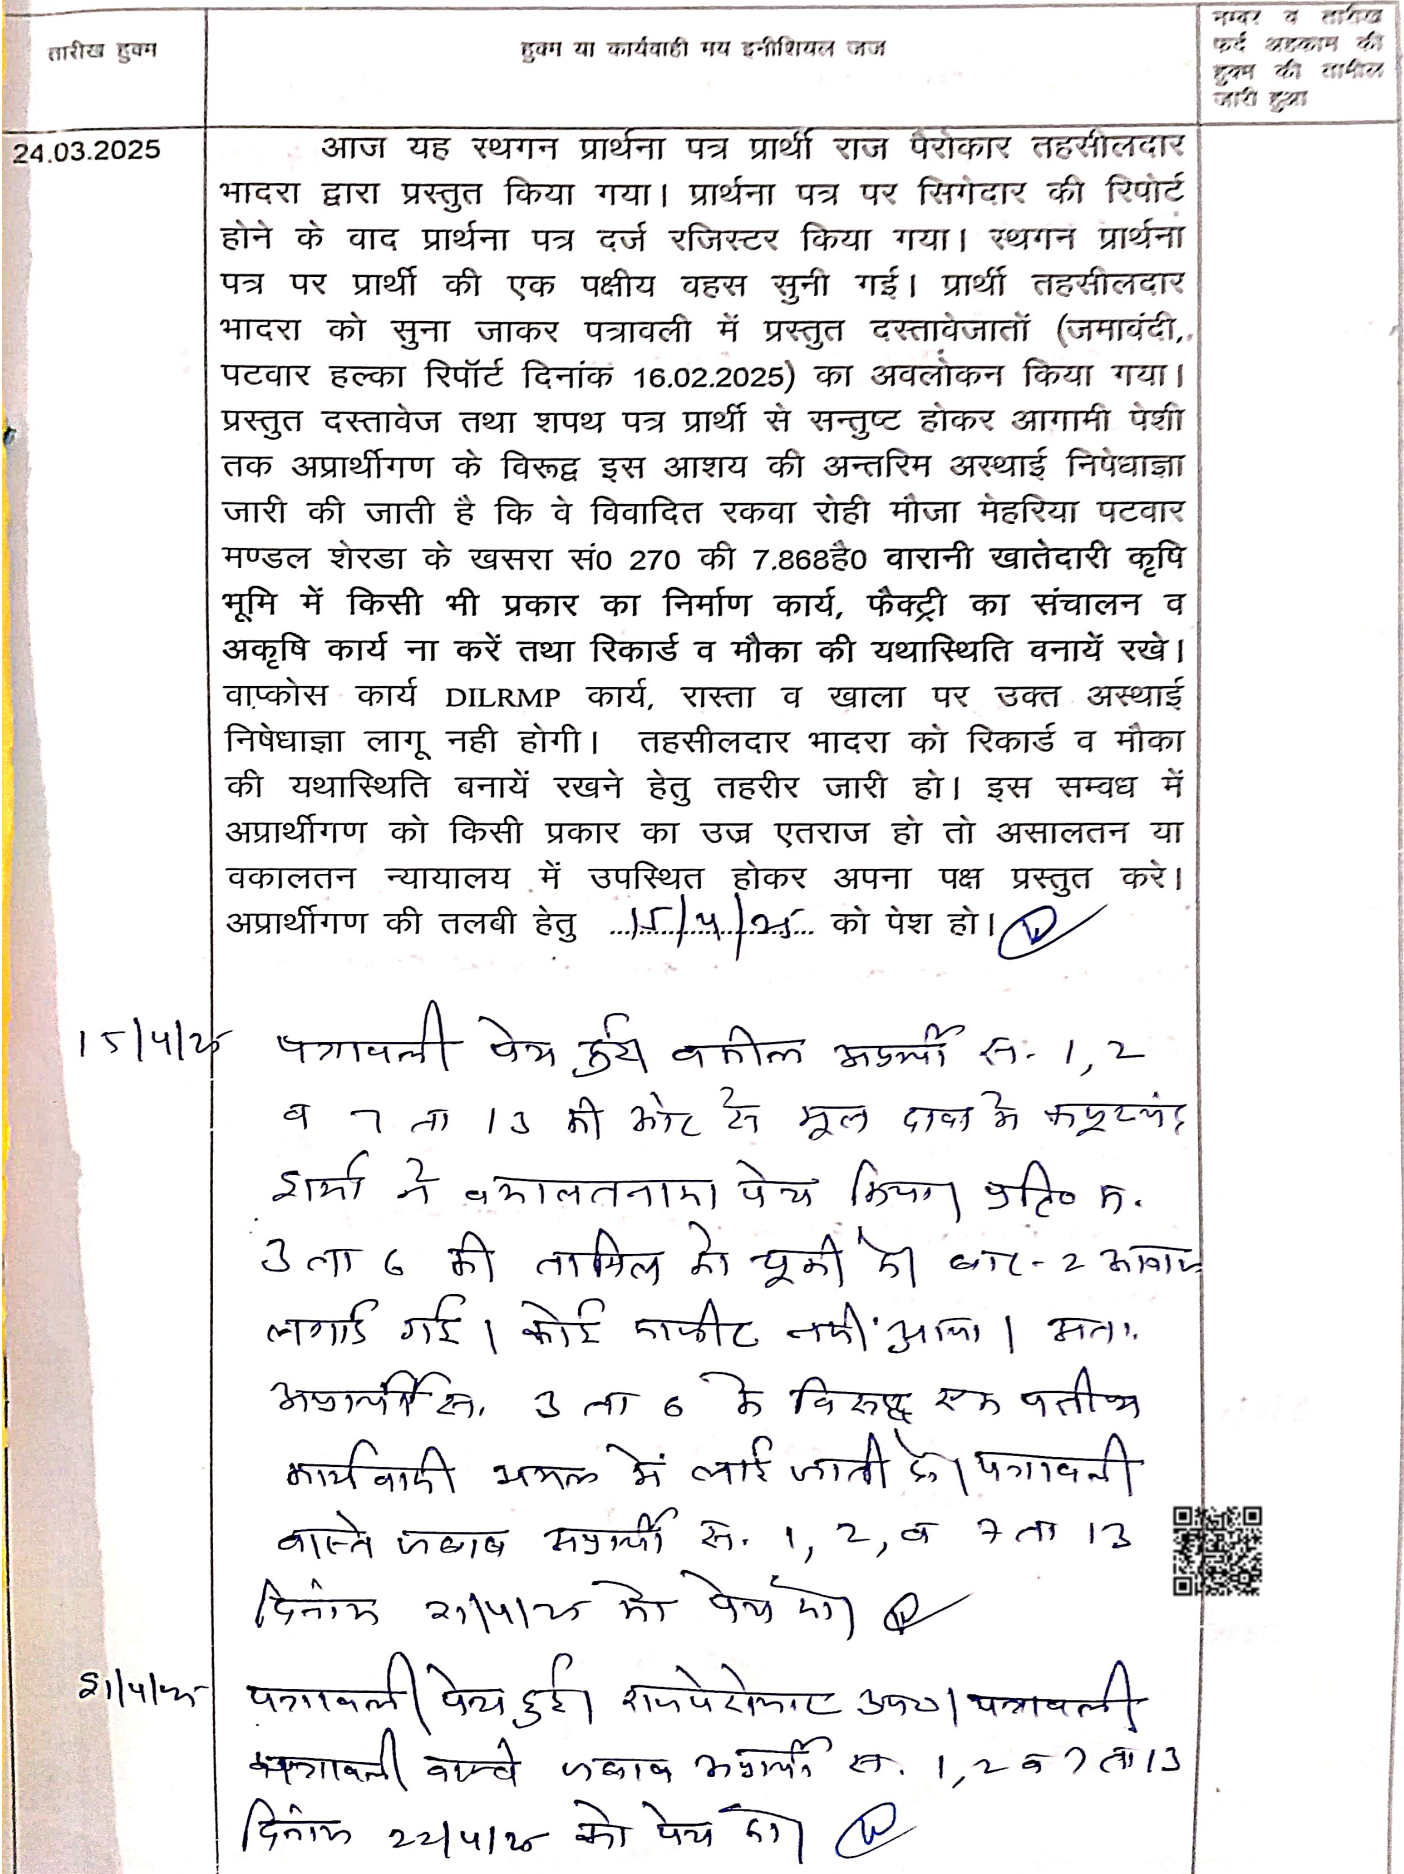 तारीख हुक्म
हुक्म या कार्यवाही मय इनीशियल जज
नम्बर व तारीख
फर्द अहकाम की
हुक्म की तामील
जारी हुआ
24.03.2025
आज यह स्थगन प्रार्थना पत्र प्रार्थी राज पैरोकार तहसीलदार
भादरा द्वारा प्रस्तुत किया गया। प्रार्थना पत्र पर सिगेदार की रिपोर्ट
होने के वाद प्रार्थना पत्र दर्ज रजिस्टर किया गया। स्थगन प्रार्थना
पत्र पर प्रार्थी की एक पक्षीय वहस सुनी गई। प्रार्थी तहसीलदार
भादरा को सुना जाकर पत्रावली में प्रस्तुत दस्तावेजातों (जमावंदी,
पटवार हल्का रिपोंर्ट दिनांक 16.02.2025) का अवलोकन किया गया।
प्रस्तुत दस्तावेज तथा शपथ पत्र प्रार्थी से सन्तुष्ट होकर आगामी पेशी
तक अप्रार्थीगण के विरूद्व इस आशय की अन्तरिम अस्थाई निषेधाज्ञा
जारी की जाती है कि वे विवादित रकवा रोही मौजा मेहरिया पटवार
मण्डल शेरडा के खसरा सं0 270 की 7.868है0 वारानी खातेदारी कृषि
भूमि में किसी भी प्रकार का निर्माण कार्य, फैक्ट्री का संचालन व
अकृषि कार्य ना करें तथा रिकार्ड व मौका की यथास्थिति वनायें रखे।
वाप्कोस कार्य DILRMP कार्य, रास्ता व खाला पर उक्त अस्थाई
निषेधाज्ञा लागू नही होगी। तहसीलदार भादरा को रिकार्ड व मौका
की यथास्थिति बनायें रखने हेतु तहरीर जारी हो। इस सम्वध में
अप्रार्थीगण को किसी प्रकार का उज्र एतराज हो तो असालतन या
वकालतन न्यायालय में उपस्थित होकर अपना पक्ष प्रस्तुत करे।
अप्रार्थीगण की तलबी हेतु 15/4/25 को पेश हो।
15/4/25 पत्रावली पेश हुई वकील अप्रार्थी सं. 1, 2
व 7 ता 13 की ओर से मूल दावा मे कपूरचंद
शर्मा ने वकालतनामा पेश किया। प्रति० क.
3 ता 6 की तामिल हो चूकी है। बार-2 आवाज
लगाई गई। कोई हाजीर नही आया। अतः
अप्रार्थी सं. 3 ता 6 के विरुद्ध एक पक्षीय
कार्यवाही अमल में लाई जाती है। पत्रावली
वास्ते जवाब अप्रार्थी सं. 1, 2, व 7 ता 13
दिनांक 21/4/25 को पेश हो।
21/4/25 पत्रावली पेश हुई। राजपेरोकार उप०। पत्रावली
वास्ते जवाब अप्रार्थी सं. 1, 2 व 7 ता 13
दिनांक 22/4/25 को पेश हो।